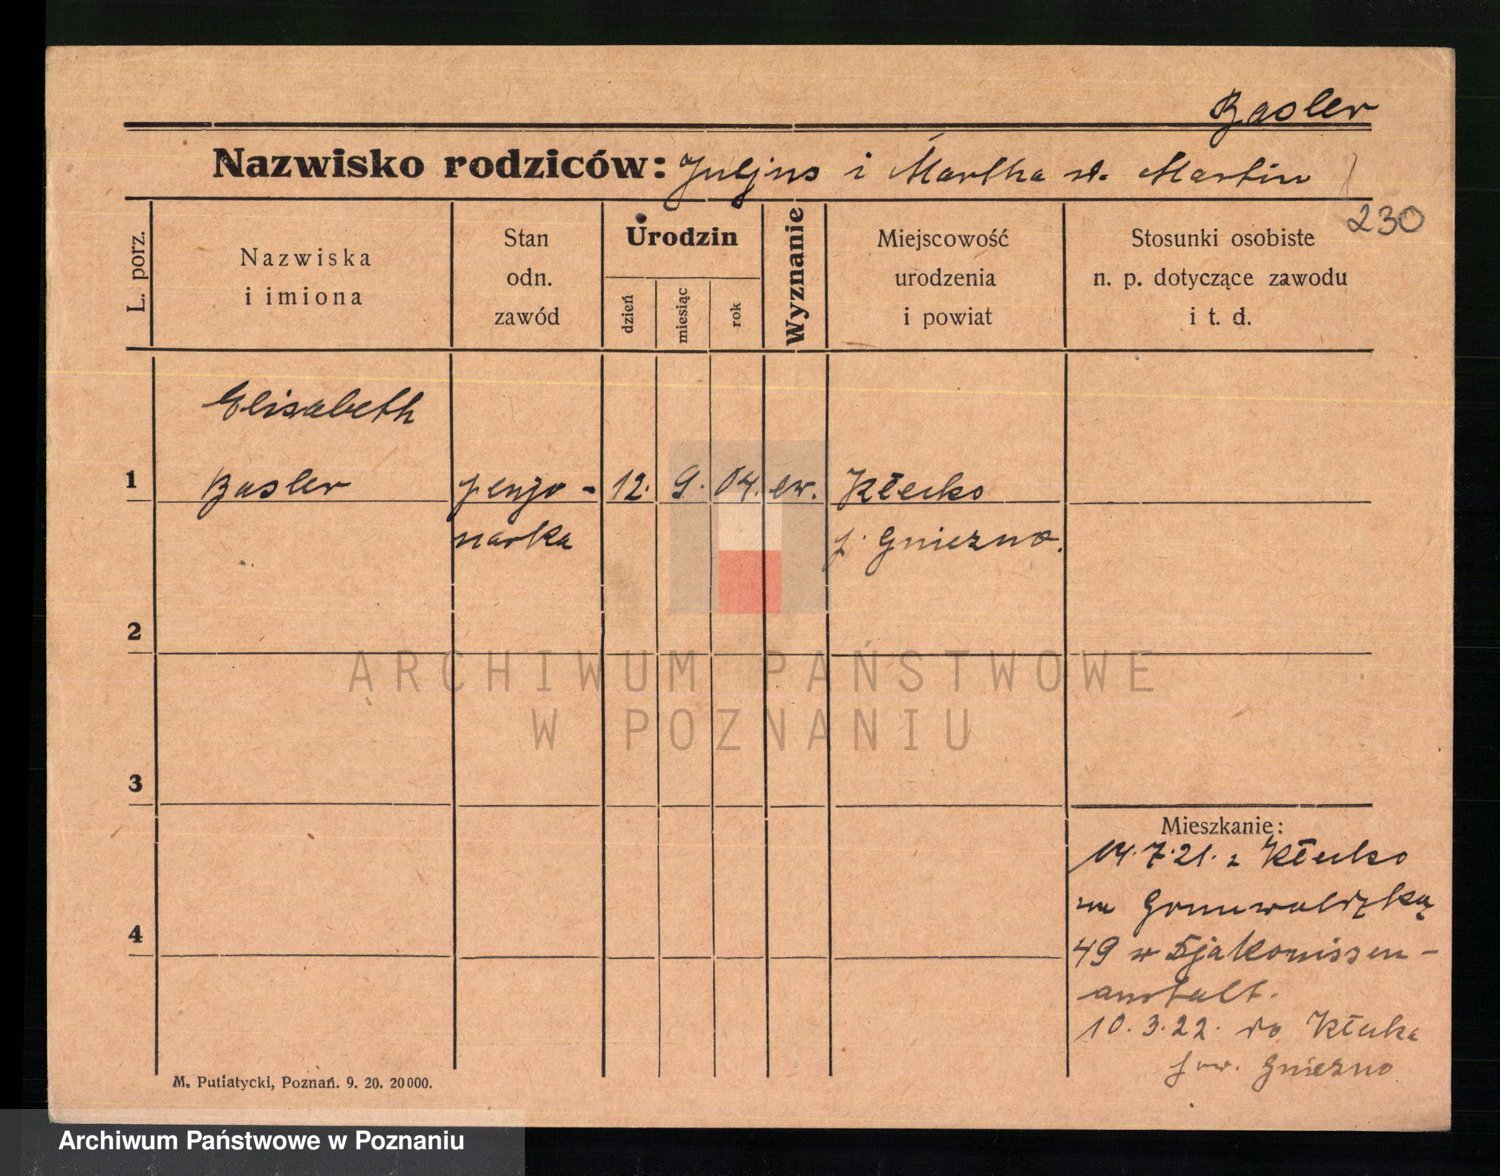 Basler
Nazwisko rodziców: Juljus i Martha d. Martin
230
L. porz.
Nazwiska
i imiona
Stan
odn.
zawód
Urodzin
dzień
miesiąc
rok
Wyznanie
Miejscowość
urodzenia
i powiat
Stosunki osobiste
n. p. dotyczące zawodu
i t. d.
Elisabeth
1 Basler penzjo- 12. 9. 04. ew. Kłecko
narka p. Gniezno.
2
3
4
Mieszkanie:
14.7.21. z Kłecko
na Grunwaldzką
49 w Djakonissen-
anstalt.
10.3.22. do Kłecka
pow. Gniezno
M. Putiatycki, Poznań. 9. 20. 20000.
ARCHIWUM PAŃSTWOWE
W POZNANIU
Archiwum Państwowe w Poznaniu